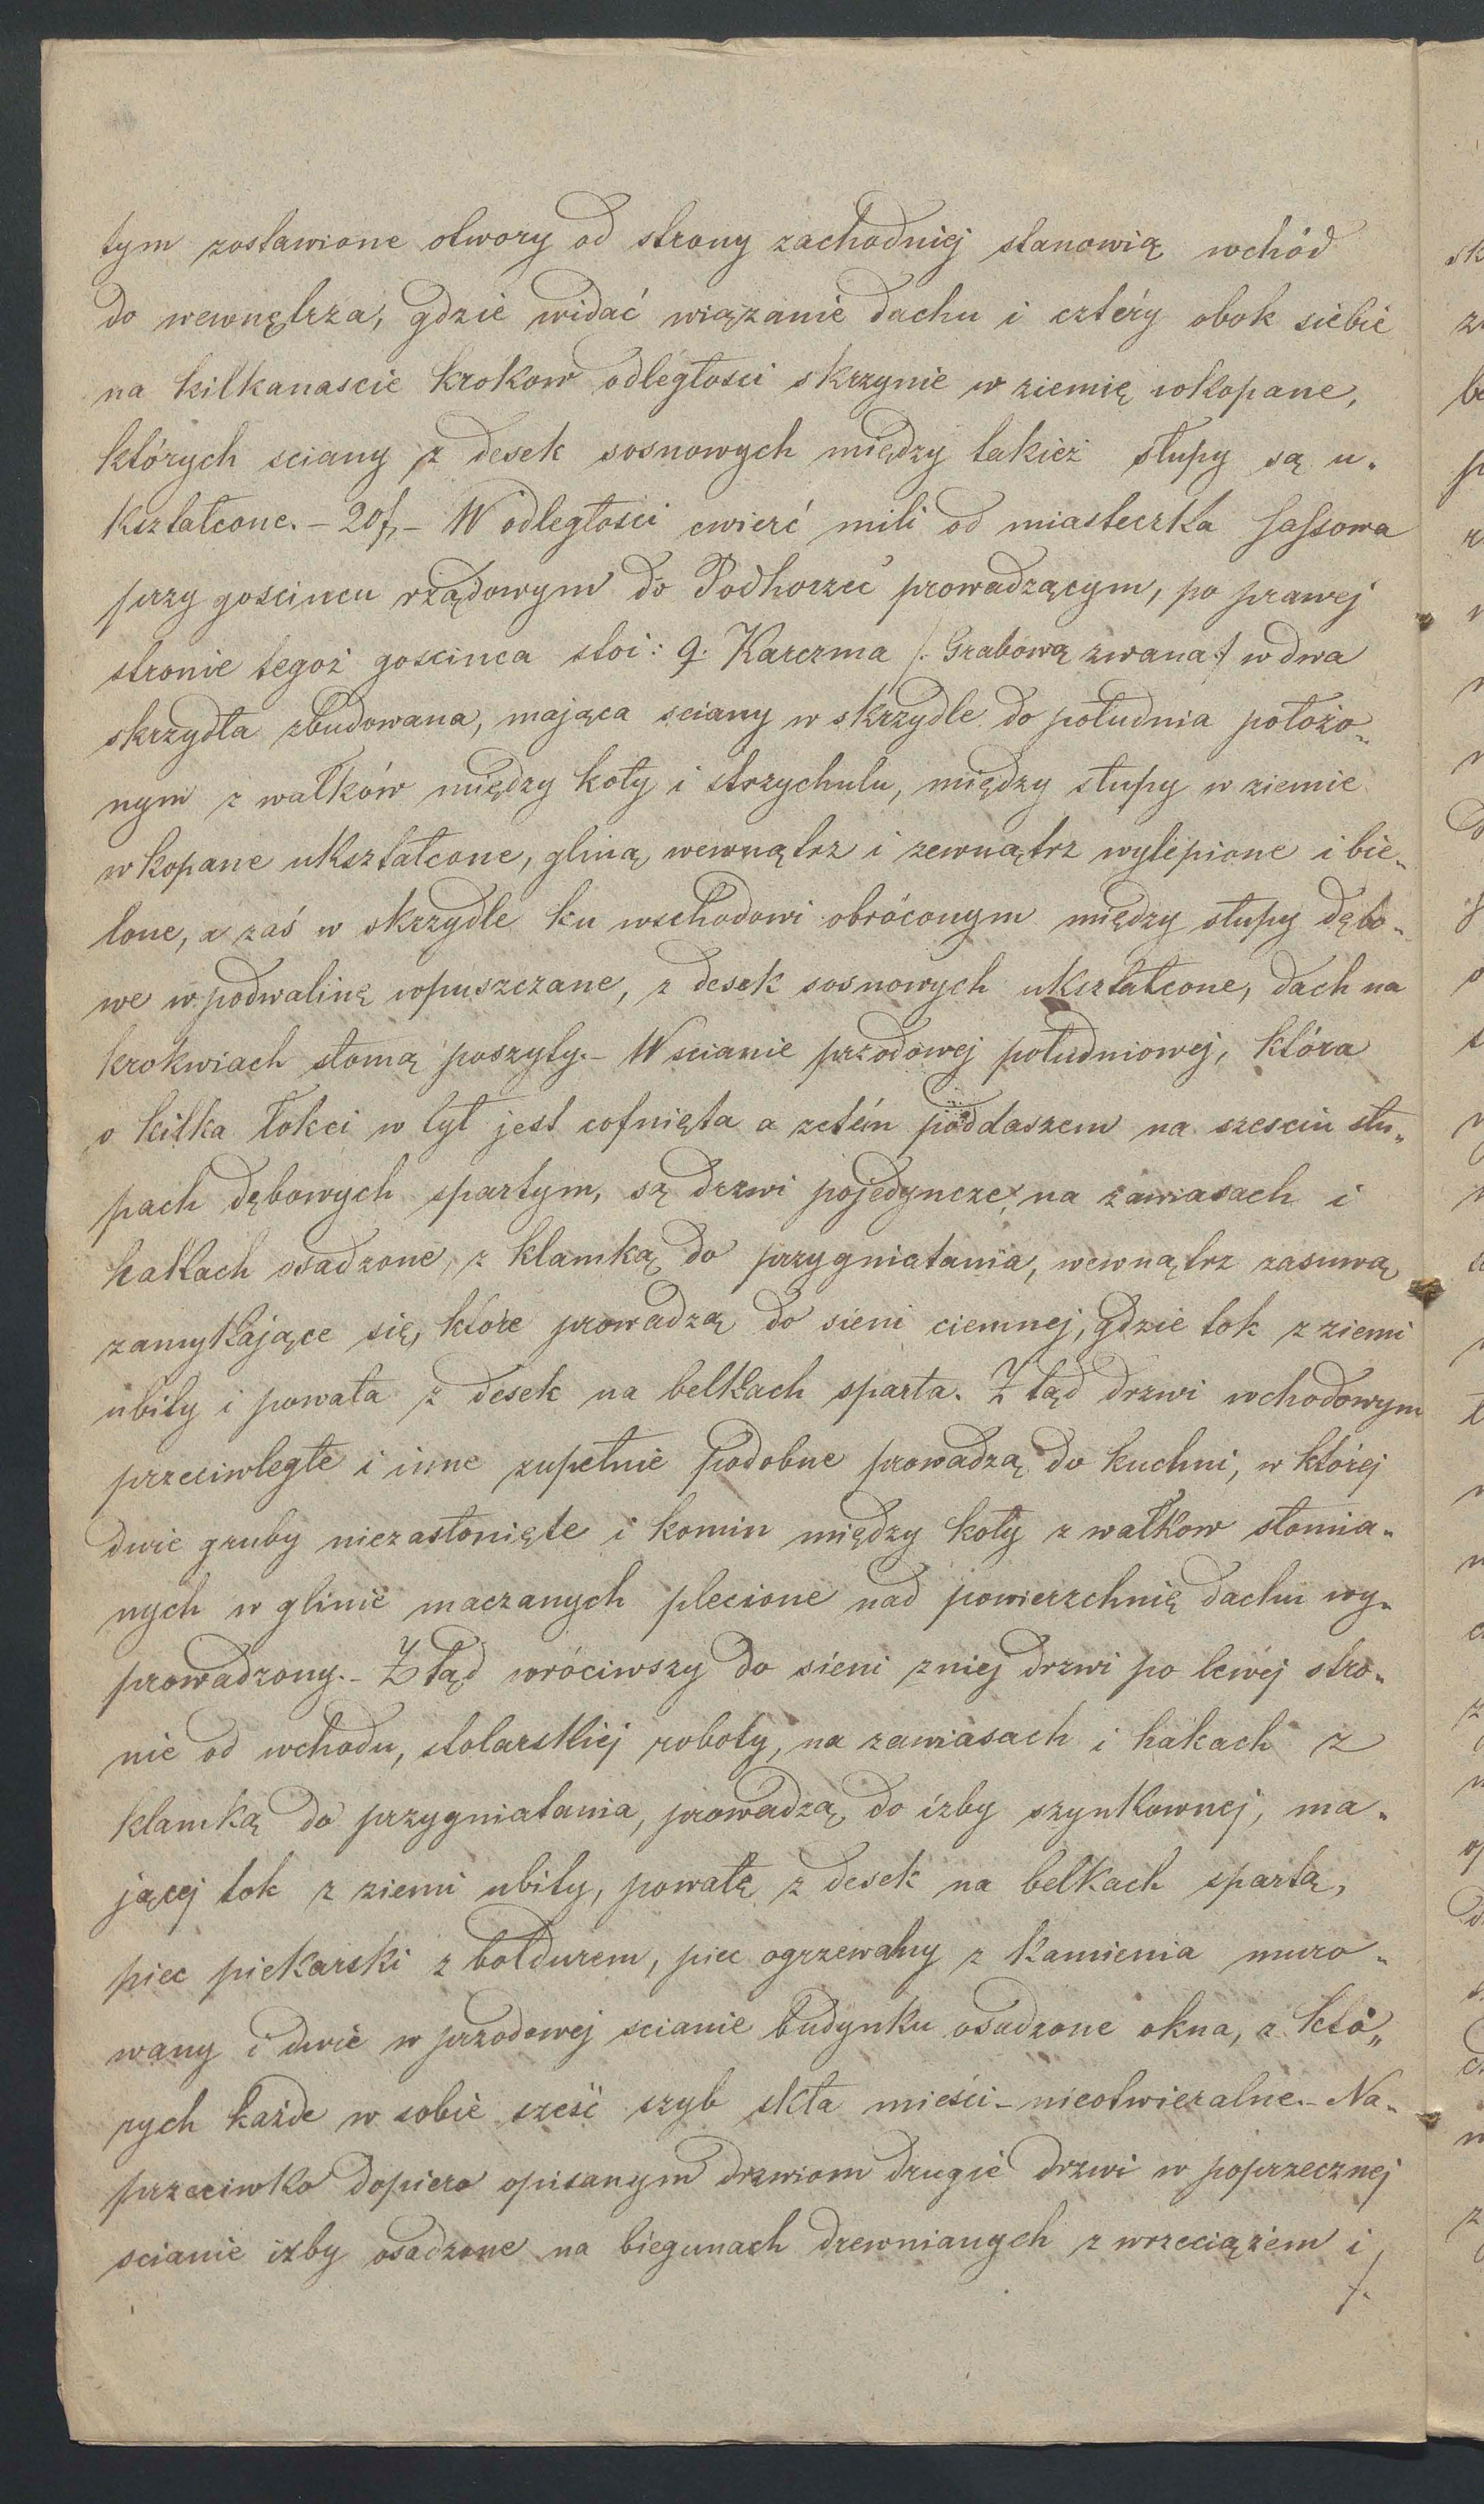 tym zostawione otwory od strony zachodniej stanowią wchód
do wewnętrza, gdzie widać wiązanie dachu i cztéry obok siebie
na kilkanascie krokow odległosci skrzynie w ziemię wkopane,
których sciany z desek sosnowych między takież słupy są u„
kształcone. – 20f, – W odległosci cwierć mili od miasteczka Sassowa
przy goscincu rządowym do Podhorzec prowadzącym, po prawej
stronie tegoż goscinca stoi: q. Karczma /: Grabową zwana :/ w dwa
skrzydła zbudowana, mająca sciany w skrzydle do południa położo„
nym z wałków między koły i strzychulu, między słupy w ziemie
wkopane ukształcone, gliną wewnątrz i zewnątrz wylepione i bie„
lone, a zaś w skrzydle ku wschodowi obróconym między słupy dębo„
we w podwalinę wpuszczane, z desek sosnowych ukształcone, dach na
krokwiach słomą poszyty. – W scianie przodowej południowej, która
o kilka łokci w tył jest cofnięta a zetém poddaszem na szesciu słu„
pach dębowych spartym, są drzwi pojedyncze, na zawiasach i
hakach osadzone, z klamką do przygniatania, wewnątrz zasuwą
zamykające się, które prowadzą do sieni ciemnej, gdzie tok z ziemi
ubity i powała z desek na belkach sparta. Ztąd drzwi wchodowym
przeciwległe i inne zupełnie podobne prowadzą do kuchni, w której
dwie gruby niezasłonięte i komin między koły z wałkow słomia„
nych w glinie maczanych plecione nad powierzchnię dachu wy„
prowadzony. – Ztąd wróciwszy do sieni z niej drzwi po lewej stro„
nie od wchodu, stolarskiej roboty, na zawiasach i hakach z
klamką do przygniatania, prowadzą do izby szynkownej, ma„
jącej tok z ziemi ubity, powałę z desek na belkach spartą,
piec piekarski z bołdurem, piec ogrzewalny z kamienia muro„
wany i dwie w przodowej scianie budynku osadzone okna, z któ„
rych każde w sobie sześć szyb skła mieści – nieotwieralne. – Na„
przeciwko dopiero opisanym drzwiom drugie drzwi w poprzecznej
scianie izby osadzone na biegunach drewnianych z wrzeciążem i
/.